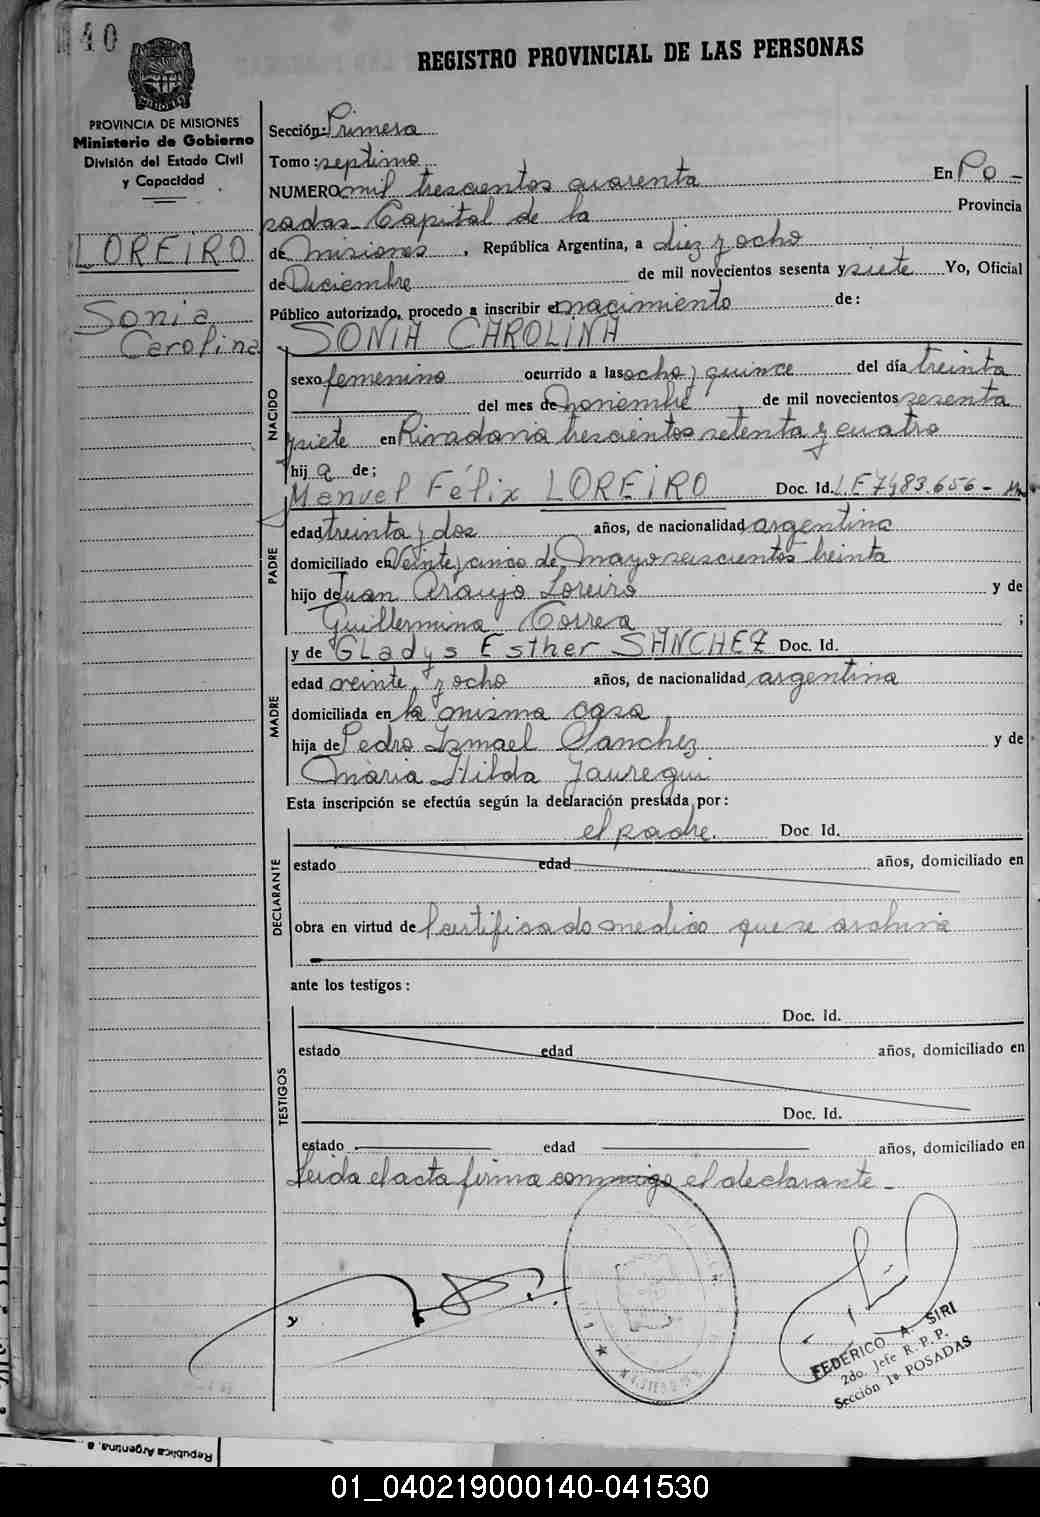 40
REGISTRO PROVINCIAL DE LAS PERSONAS
PROVINCIA DE MISIONES
Ministerio de Gobierno
División del Estado Civil
y Capacidad
LOREIRO
Sonia
Carolina
Sección: Primera
Tomo: septimo
NUMERO mil trescientos cuarenta En Po-
sadas Capital de la Provincia
de Misiones, República Argentina, a diez y ocho
de Diciembre de mil novecientos sesenta y siete Yo, Oficial
Público autorizado, procedo a inscribir el nacimiento de:
SONIA CAROLINA
NACIDO
sexo femenino ocurrido a las ocho y quince del día treinta
del mes de noviembre de mil novecientos sesenta
y siete en Rivadavia trescientos setenta y cuatro
hija de;
Manuel Félix LOREIRO Doc. Id. L E 7483.656-
PADRE
edad treinta y dos años, de nacionalidad argentina
domiciliado en Veinte y cinco de Mayo seiscientos treinta
hijo de Juan Araujo Loreiro y de
Guillermina Correa ;
y de Gladys Esther SANCHEZ Doc. Id.
MADRE
edad veinte y ocho años, de nacionalidad argentina
domiciliada en la misma casa
hija de Pedro Ismael Sanchez y de
Maria Hilda Jauregui
Esta inscripción se efectúa según la declaración prestada por:
el padre. Doc. Id.
DECLARANTE
estado edad años, domiciliado en
obra en virtud de certificado medico que se archiva
ante los testigos:
Doc. Id.
TESTIGOS
estado edad años, domiciliado en
Doc. Id.
estado edad años, domiciliado en
Leida el acta firma conmigo el declarante-
y
FEDERICO A. SIRI
2do. Jefe R. P. P.
Sección 1ª POSADAS
República Argentina, a
01_040219000140-041530